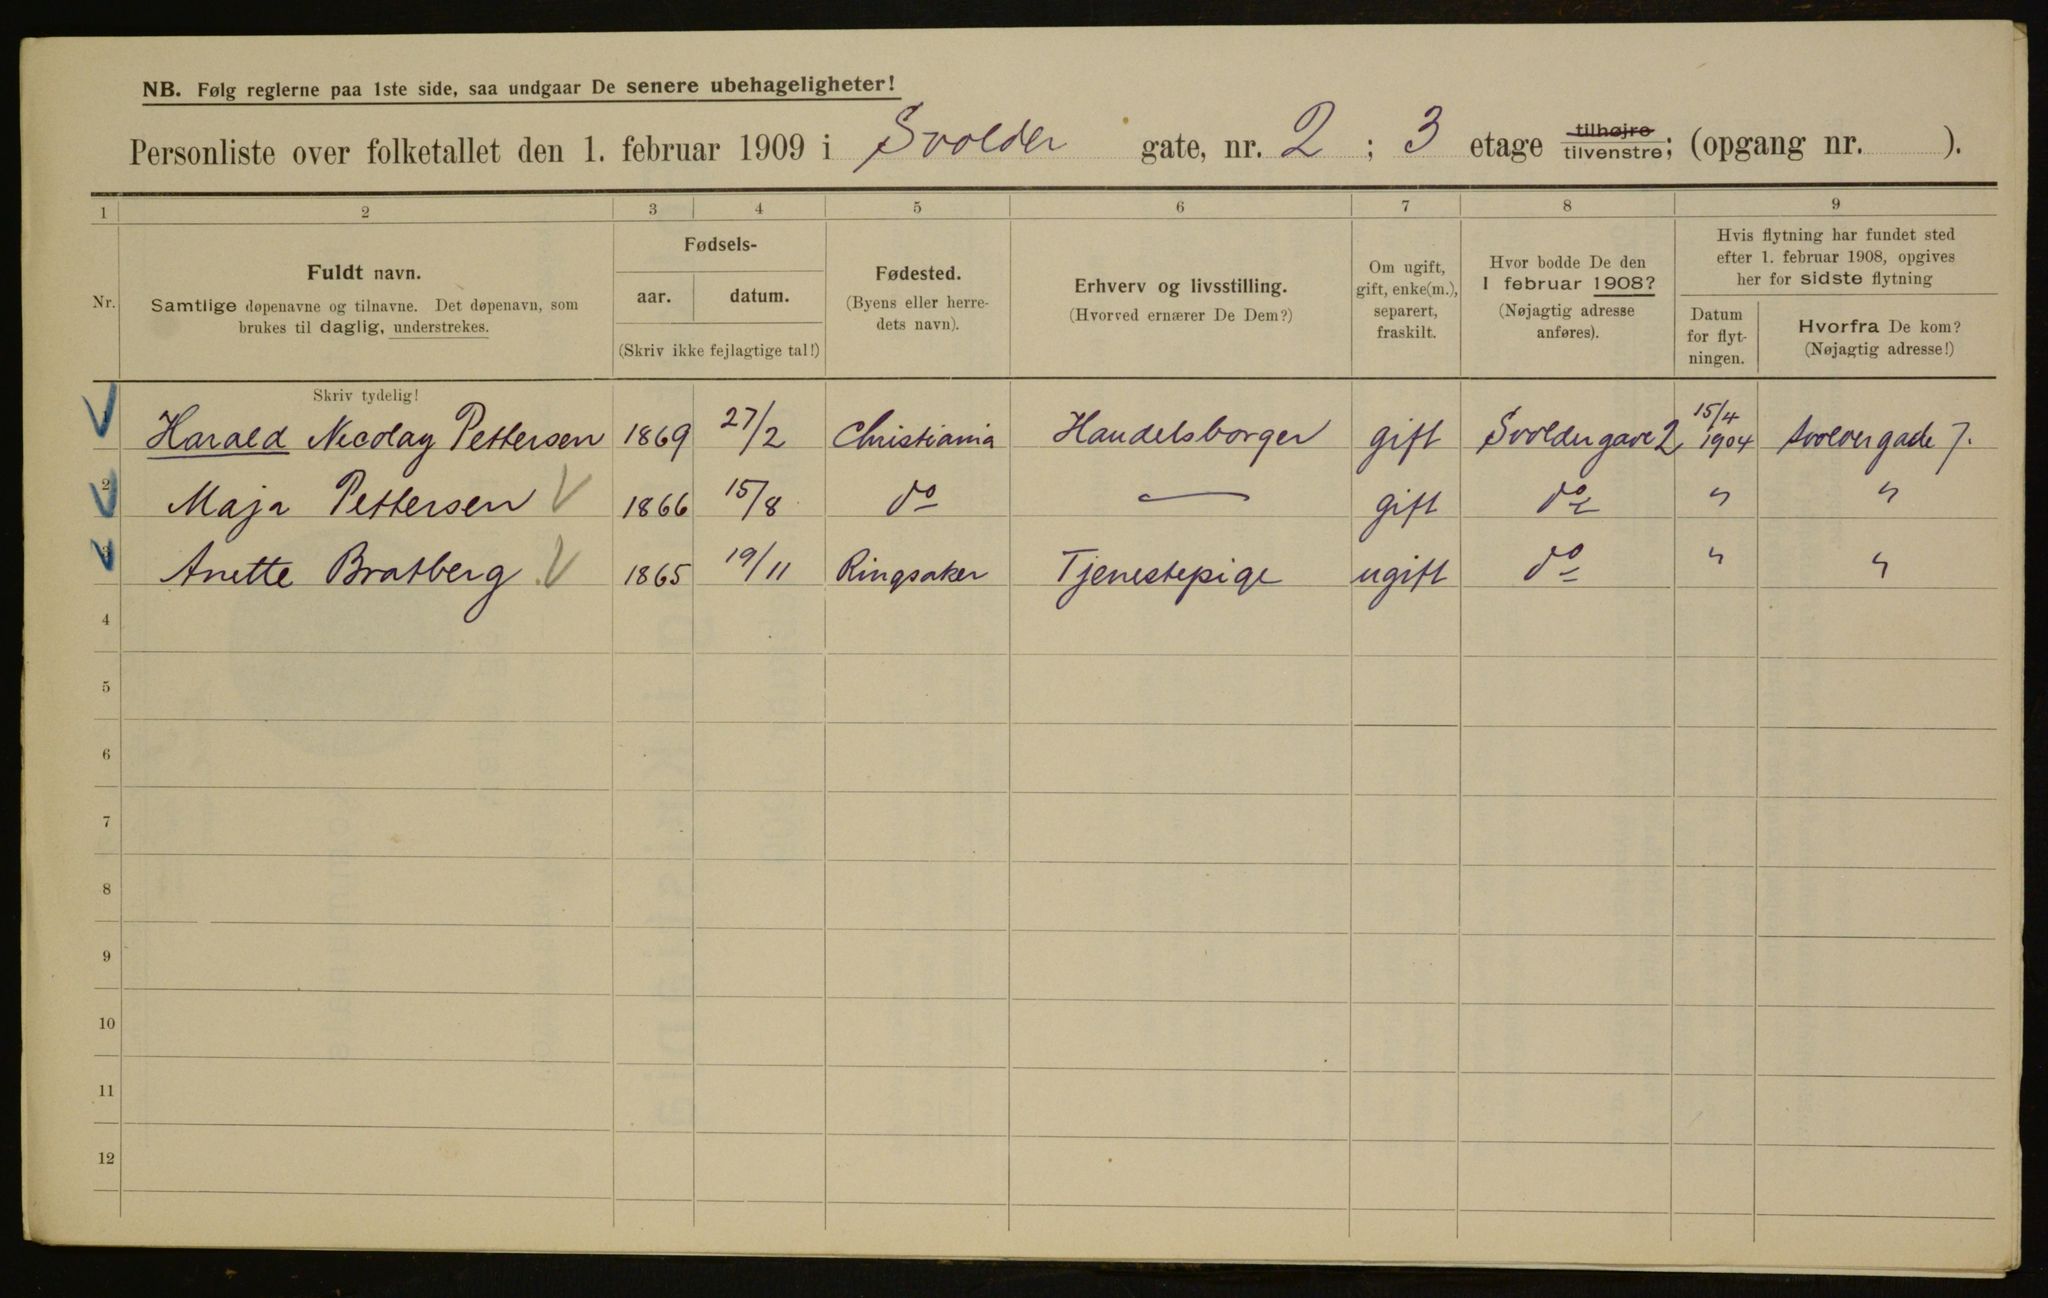 NB. Følg reglerne paa 1ste side, saa undgaar De senere ubehageligheter!
Personliste over folketallet den 1. februar 1909 i Svolder gate, nr. 2 ; 3 etage tilhøjre tilvenstre; (opgang nr. ).
1 2 3 4 5 6 7 8 9
Nr.
Fuldt navn.
Samtlige døpenavne og tilnavne. Det døpenavn, som
brukes til daglig, understrekes.
Fødsels-
aar. datum.
(Skriv ikke fejlagtige tal!)
Fødested.
(Byens eller herre-
dets navn).
Erhverv og livsstilling.
(Hvorved ernærer De Dem?)
Om ugift,
gift, enke(m.),
separert,
fraskilt.
Hvor bodde De den
1 februar 1908?
(Nøjagtig adresse
anføres).
Hvis flytning har fundet sted
efter 1. februar 1908, opgives
her for sidste flytning
Datum
for flyt-
ningen.
Hvorfra De kom?
(Nøjagtig adresse!)
Skriv tydelig!
1 Harald Nicolay Pettersen 1869 27/2 Christiania Handelsborger gift Svoldergade 2 15/4 1904 Svoldergade 7.
2 Maja Pettersen 1866 15/8 do — gift do " "
3 Anette Bratberg 1865 19/11 Ringsaker Tjenestepige ugift do " "
4
5
6
7
8
9
10
11
12